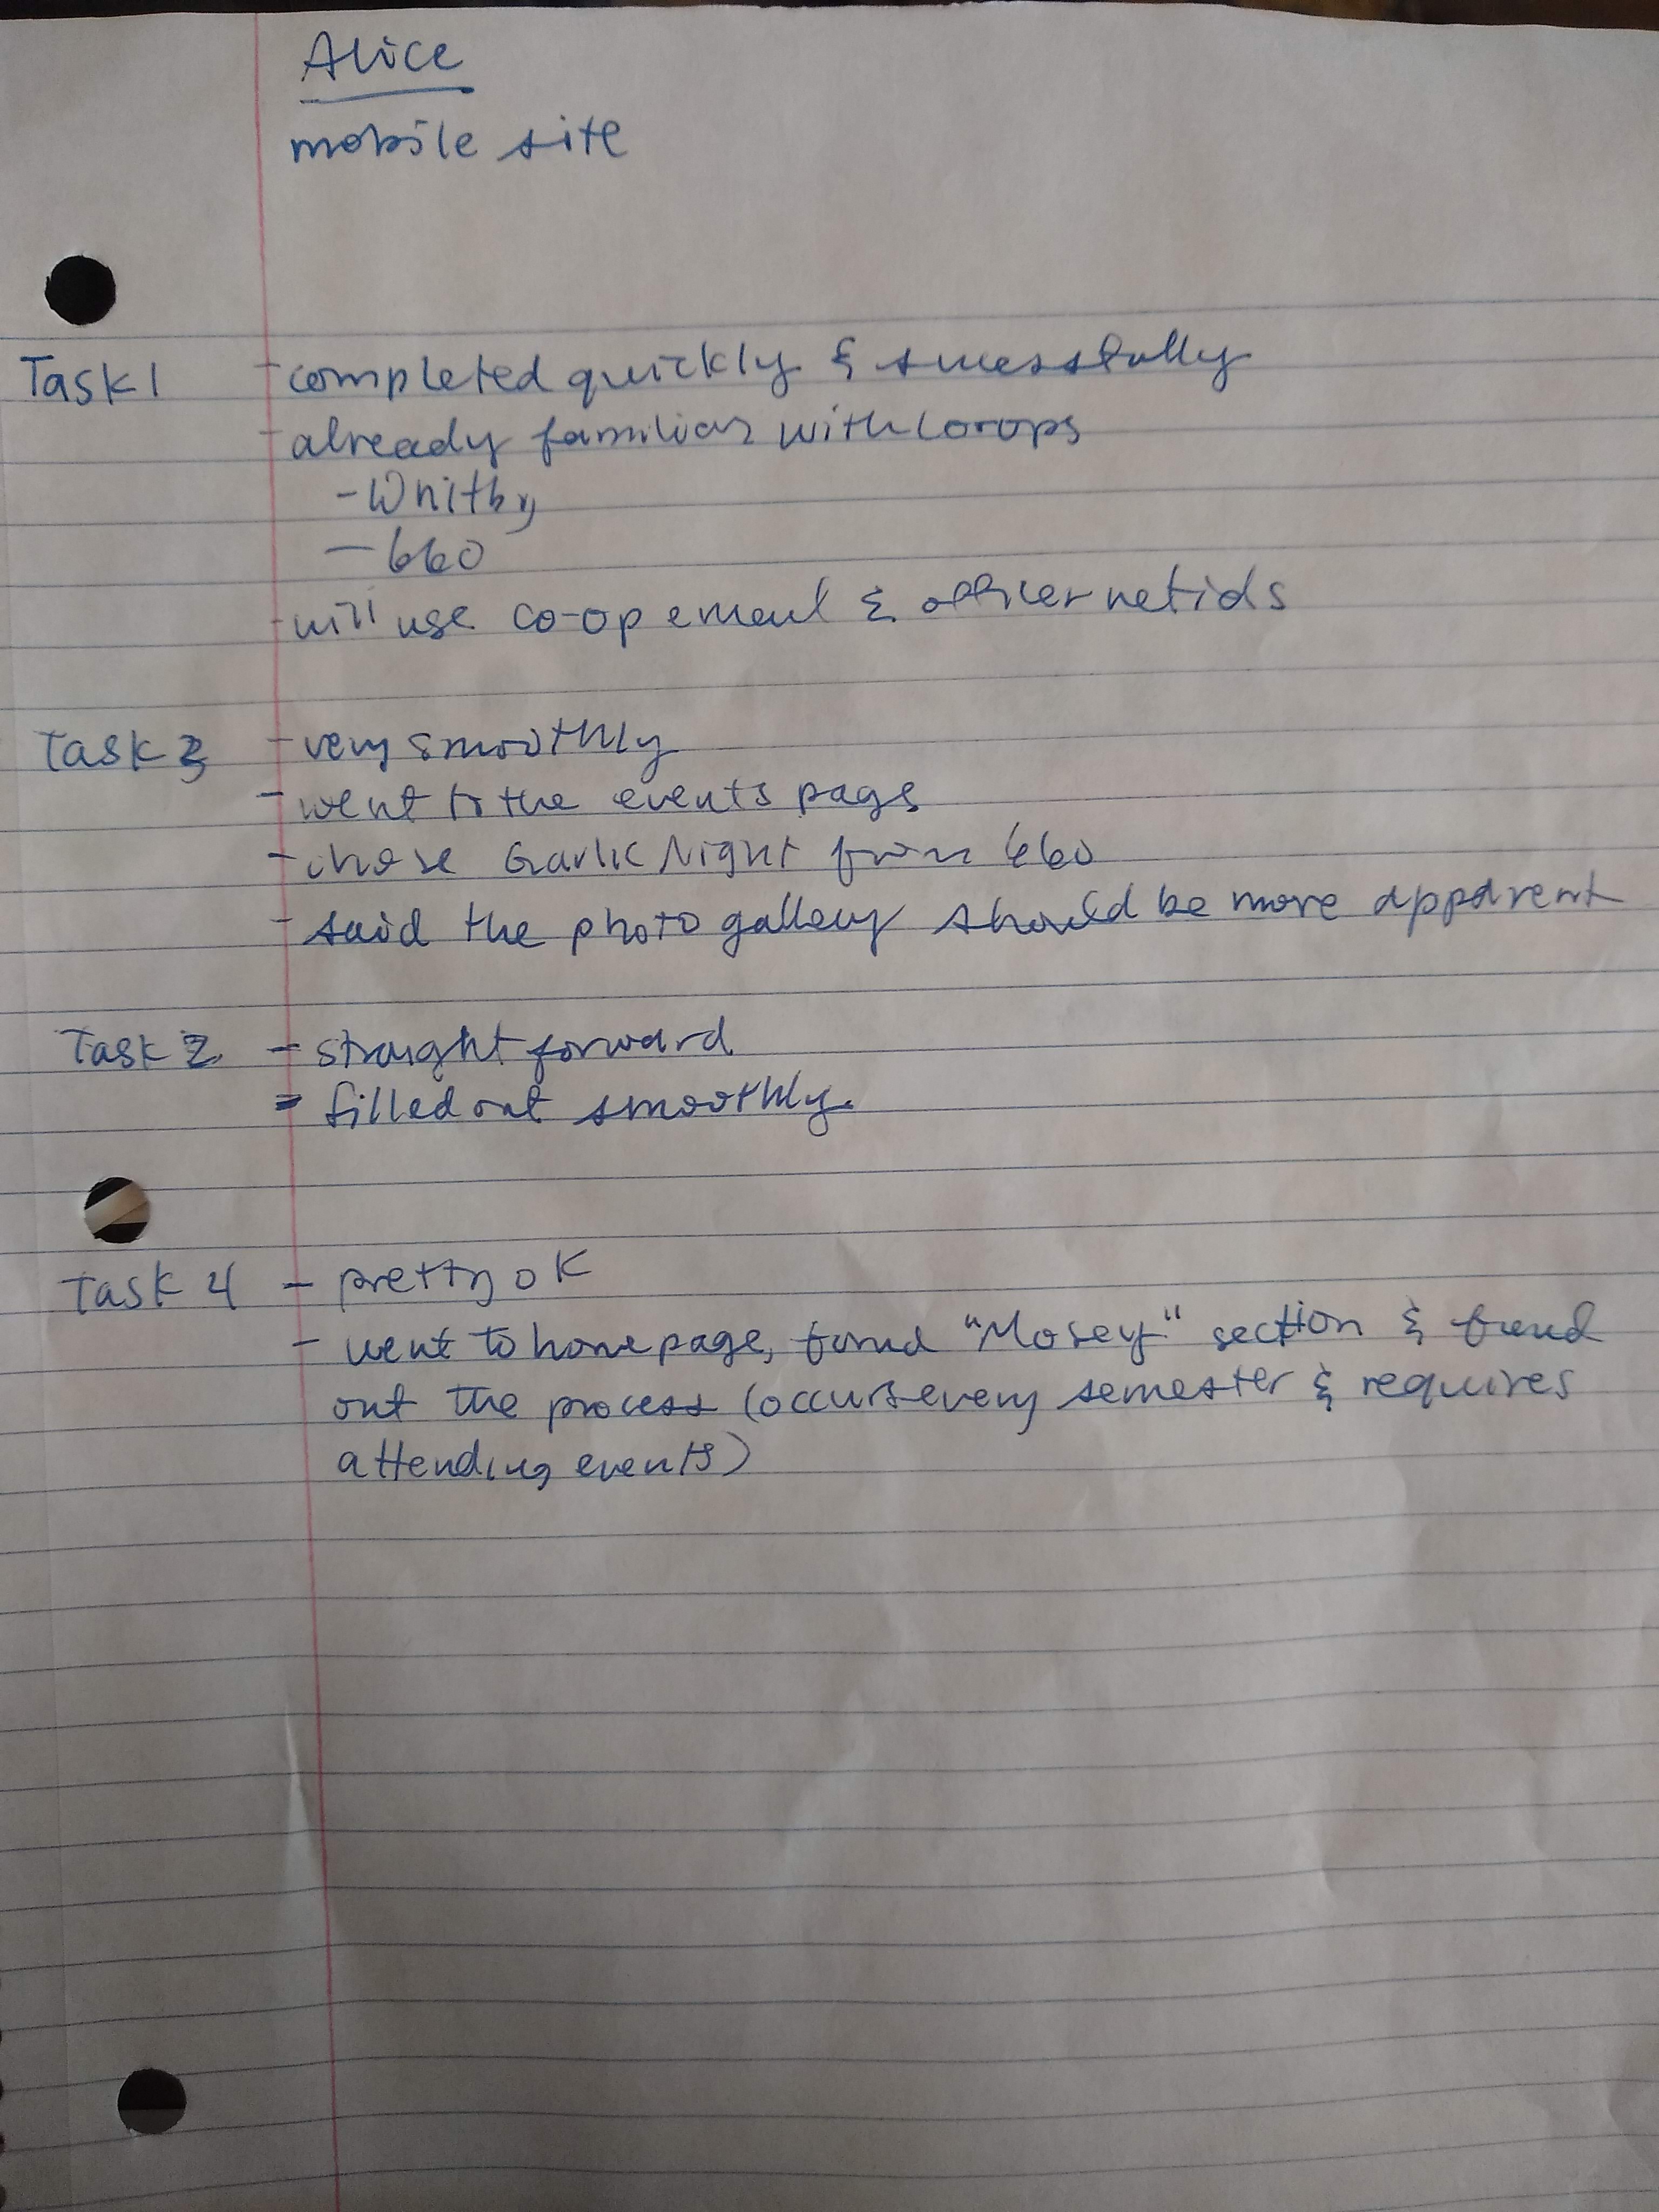 Alice
mobile site
Task 1 - completed quickly & sucessfully
- already familiar with coops
- Whitby
- 660
- will use co-op email & officer netids
Task 3 - very smoothly
- went to the events page
- chose Garlic Night from 660
- said the photo gallery should be more apparent
Task 2 - straight forward
- filled out smoothly.
Task 4 - pretty ok
- went to home page, found "Mosey" section & found
out the process (occurs every semester & requires
attending events)